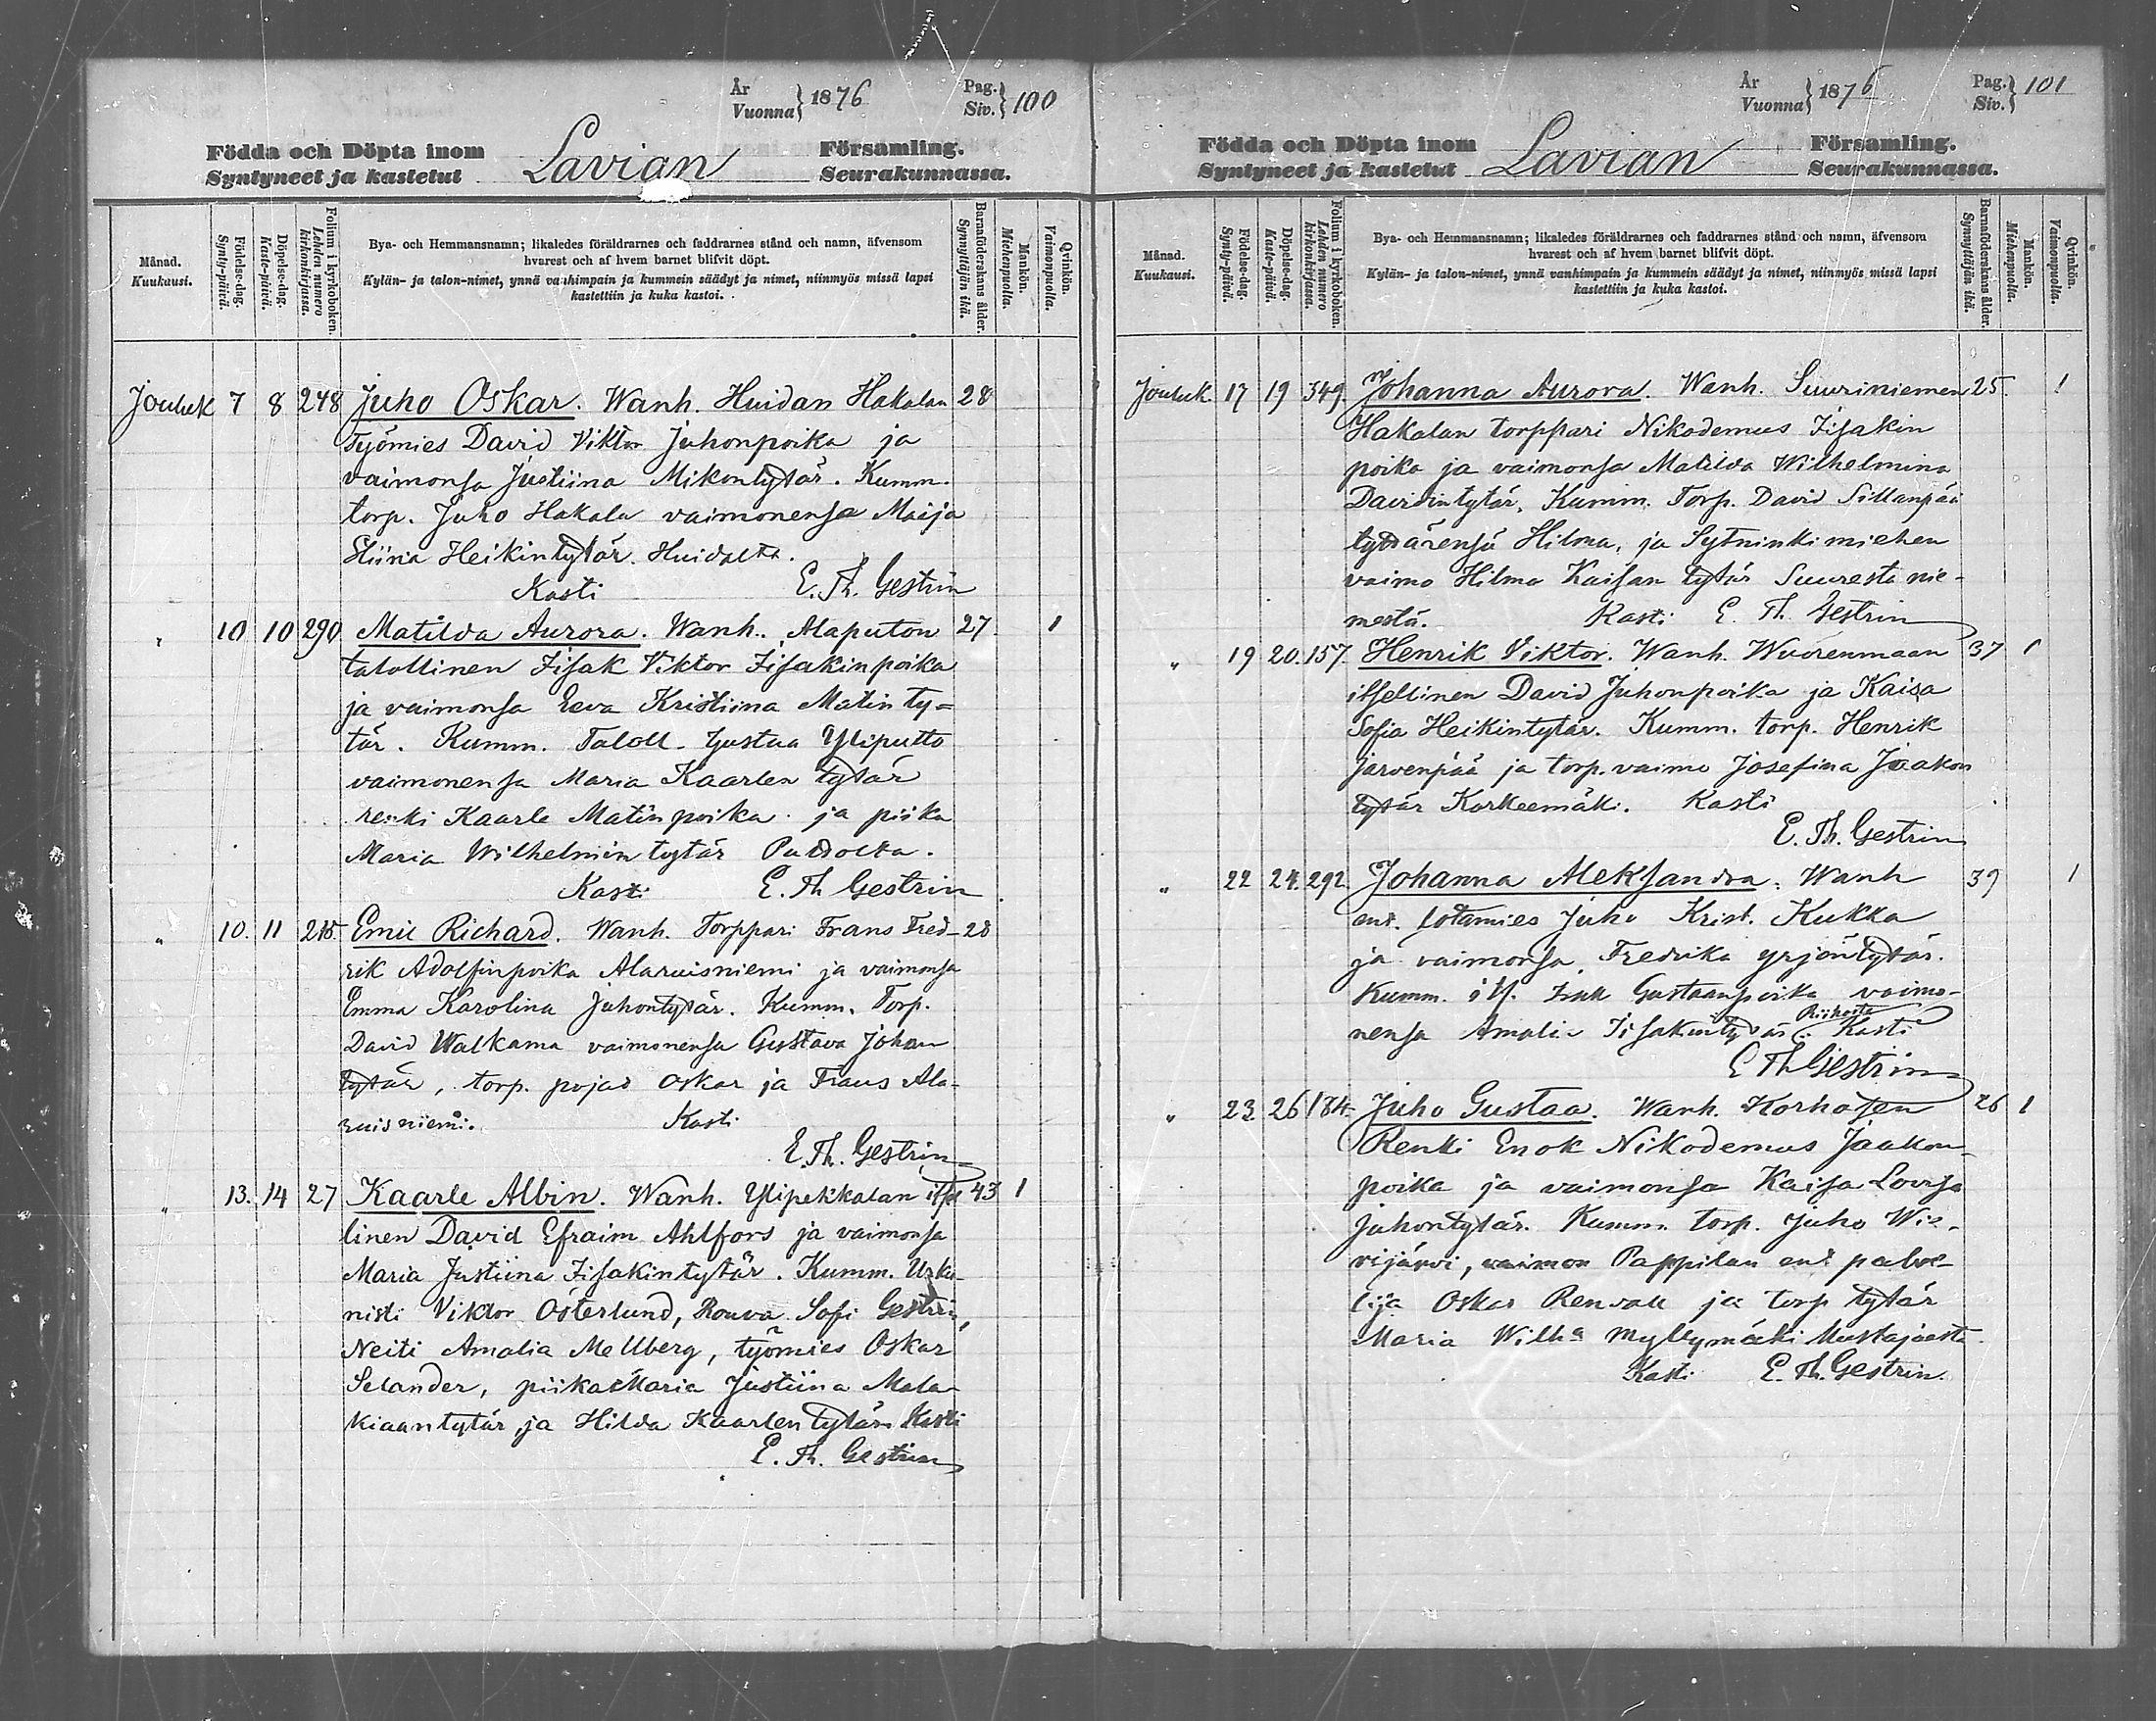 År
Vuonna } 1876 Pag.
Siv. } 100
Födda och Döpta inom Lavian Församling.
Syntyneet ja kastetut Seurakunnassa.
Månad.
Kuukausi.
Födelse-dag.
Synty-päivä.
Döpelse-dag.
Kaste-päivä.
Folium i kyrkoboken.
Lehden numero
kirkonkirjassa.
Bya- och Hemmansnamn; likaledes föräldrarnes och faddrarnes stånd och namn, äfvensom
hvarest och af hvem barnet blifvit döpt.
Kylän- ja talon-nimet, ynnä vanhimpain ja kummein säädyt ja nimet, niinmyös missä lapsi
kastettiin ja kuka kastoi.
Barnaföderskans ålder.
Synnyttäjän ikä.
Mankön.
Miehenpuolia.
Qvinkön.
Vaimonpuolia.
Jouluk 7 8 248 Juho Oskar. Wanh. Huidan Hakalan 28
Työmies David Viktor Juhonpoika ja
vaimonsa Justiina Mikontytär. Kumm.
torp. Juho Hakala vaimonensa Maija
Stiina Heikintytär. Huidalta.
Kasti E. Th. Gestrin
" 10 10 290 Matilda Aurora. Wanh. Alaputon 27 1
talollinen Iisak Viktor Iisakinpoika
ja vaimonsa Eeva Kristiina Matinty=
tär. Kumm. Taloll. Gustaa Yliputto
vaimonensa Maria Kaarlen tytär
renki Kaarle Matinpoika ja piika
Maria Wilhelmin tytär Putolta.
Kasti E. Th Gestrin
" 10. 11 215 Emil Richard. Wanh. Torppari Frans Fred- 28
rik Adolfinpoika Alaruisniemi ja vaimonsa
Emma Karolina Juhontytär. Kumm. Torp.
David Walkama vaimonensa Gustava Johan
tytär, torp. pojad Oskar ja Frans Ala-
ruisniemi. Kasti
E. Th. Gestrin
" 13. 14 27 Kaarle Albin. Wanh. Ylipekkalan itsel 43 1
linen David Efraim Ahlfors ja vaimonsa
Maria Justiina Iisakintytär. Kumm. Urku-
nisti Viktor Österlund, Rouva Sofi Gestrin,
Neiti Amalia Mellberg, työmies Oskar
Selander, piika Maria Justiina Mala-
kiaantytär ja Hilda Kaarlen tytär Kasti
E. Th. Gestrin
År
Vuonna } 1876 Pag.
Siv. } 101
Födda och Döpta inom Lavian Församling.
Syntyneet ja kastetut Seurakunnassa.
Månad.
Kuukausi.
Födelse-dag.
Synty-päivä.
Döpelse-dag.
Kaste-päivä.
Folium i kyrkoboken.
Lehden numero
kirkonkirjassa.
Bya- och Hemmansnamn; likaledes föräldrarnes och faddrarnes stånd och namn, äfvensom
hvarest och af hvem barnet blifvit döpt.
Kylän- ja talon-nimet, ynnä vanhimpain ja kummein säädyt ja nimet, niinmyös missä lapsi
kastettiin ja kuka kastoi.
Barnaföderskans ålder.
Synnyttäjän ikä.
Mankön.
Miehenpuolia.
Qvinkön.
Vaimonpuolia.
Jouluk. 17 19 349. Johanna Aurora. Wanh. Suuriniemen 25. 1
Hakalan torppari Nikodemus Iisakin
poika ja vaimonsa Matilda Wilhelmina
Davidintytär. Kumm. Torp. David Sillanpää
tyttärensä Hilma, ja Sytninkimiehen
vaimo Hilma Kaisan tytär Suuresta nie-
mestä. Kasti E. Th. Gestrin
" 19 20. 157. Henrik Viktor. Wanh. Wuorenmaan 37 1
itsellinen David Juhonpoika ja Kaisa
Sofia Heikintytär. Kumm. torp. Henrik
Järvenpää ja torp. vaimo Josefina Jaakon
tytär Korkeemäki. Kasti
E. Th. Gestrin
" 22 24. 292. Johanna Aleksandra. Wanh 39 1
ent. sotamies Juho Krist. Kukka
ja vaimonsa Fredrika Yrjöntytär.
Kumm. its. Isak Gustaanpoika vaimo-
nensa Amalia Iisakintytär Riihosta Kasti
E Th Gestrin
" 23 26 184. Juho Gustaa. Wanh. Korhosen 26 1
Renki Enok Nikodemus Jaakon-
poika ja vaimonsa Kaisa Lovisa
Juhontytär. Kumm. torp. Juho Wie-
rijärvi, vaimon Pappilan ent palve-
lija Oskar Renvall ja torp tytär
Maria Wilha Myllymäki Mustajoesta.
Kasti E. Th. Gestrin.